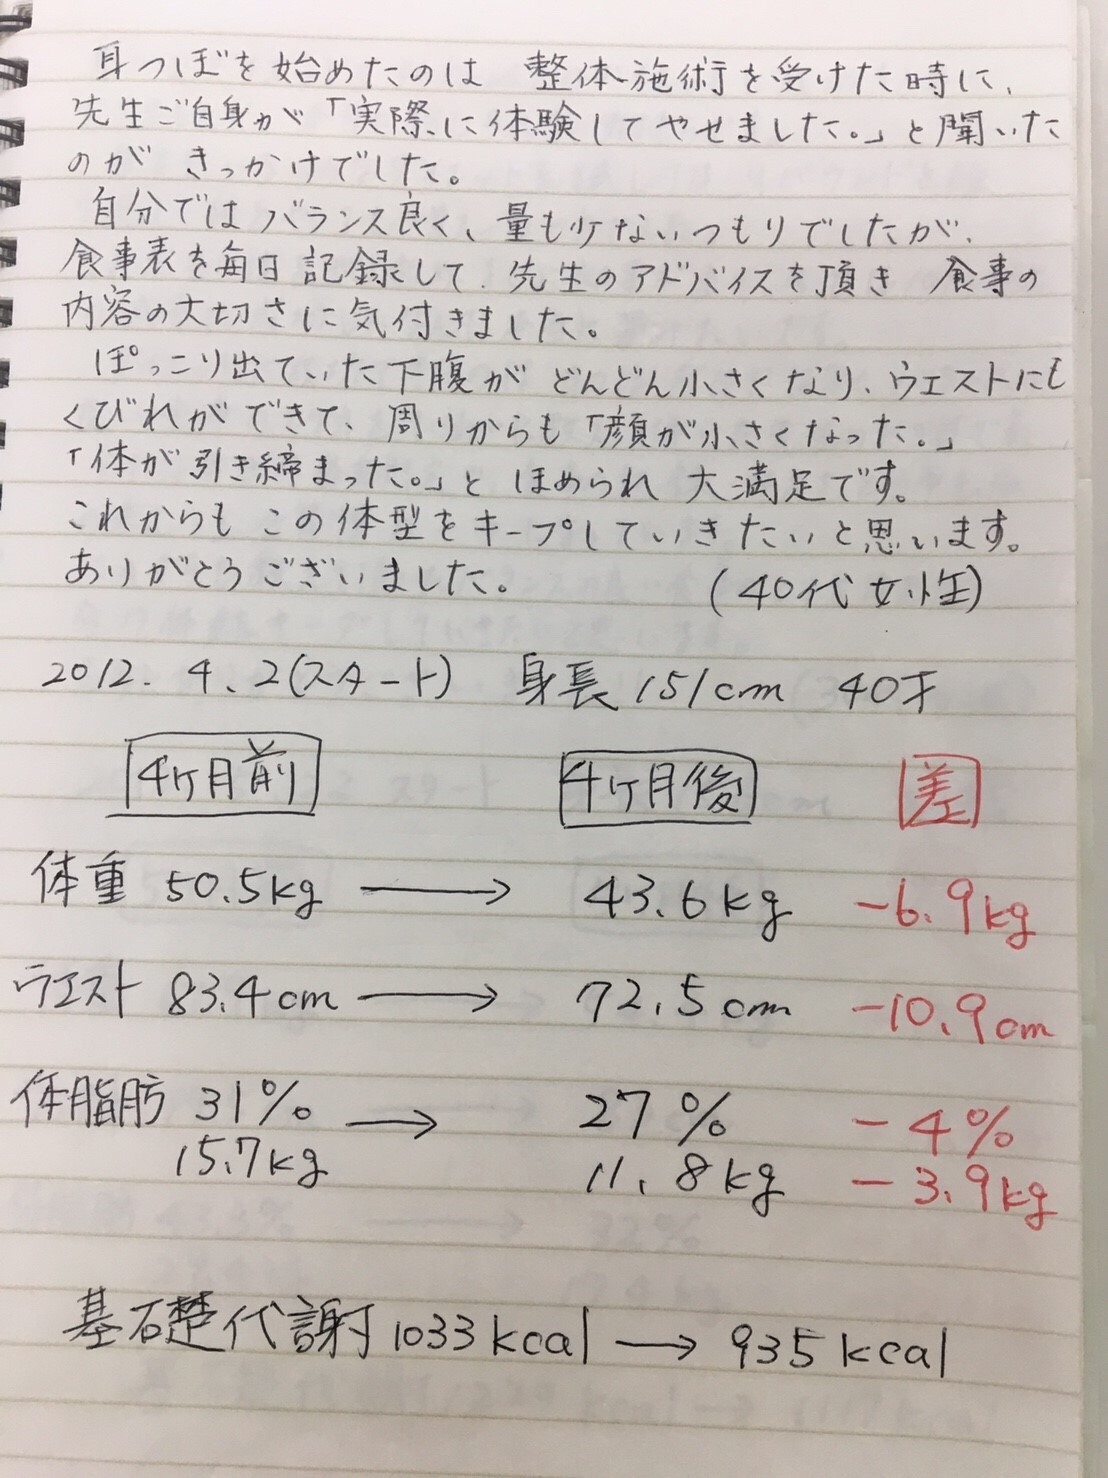 耳つぼを始めたのは 整体施術を受けた時に、
先生ご自身が「実際に体験してやせました。」と聞いた
のが きっかけでした。
自分では バランス良く、量も少ないつもりでしたが、
食事表を毎日記録して、先生のアドバイスを頂き 食事の
内容の大切さに気付きました。
ぽっこり出ていた下腹が どんどん小さくなり、ウエストにも
くびれができて、周りからも「顔が小さくなった。」
「体が引き締まった。」と ほめられ 大満足です。
これからも この体型をキープしていきたいと思います。
ありがとうございました。 (40代女性)
2012. 4. 2(スタート) 身長151cm 40才
4ヶ月前 4ヶ月後 差
体重 50.5kg → 43.6kg -6.9kg
ウエスト 83.4cm → 72.5cm -10.9cm
体脂肪 31% → 27% -4%
15.7kg 11.8kg -3.9kg
基礎代謝 1033kcal → 935kcal